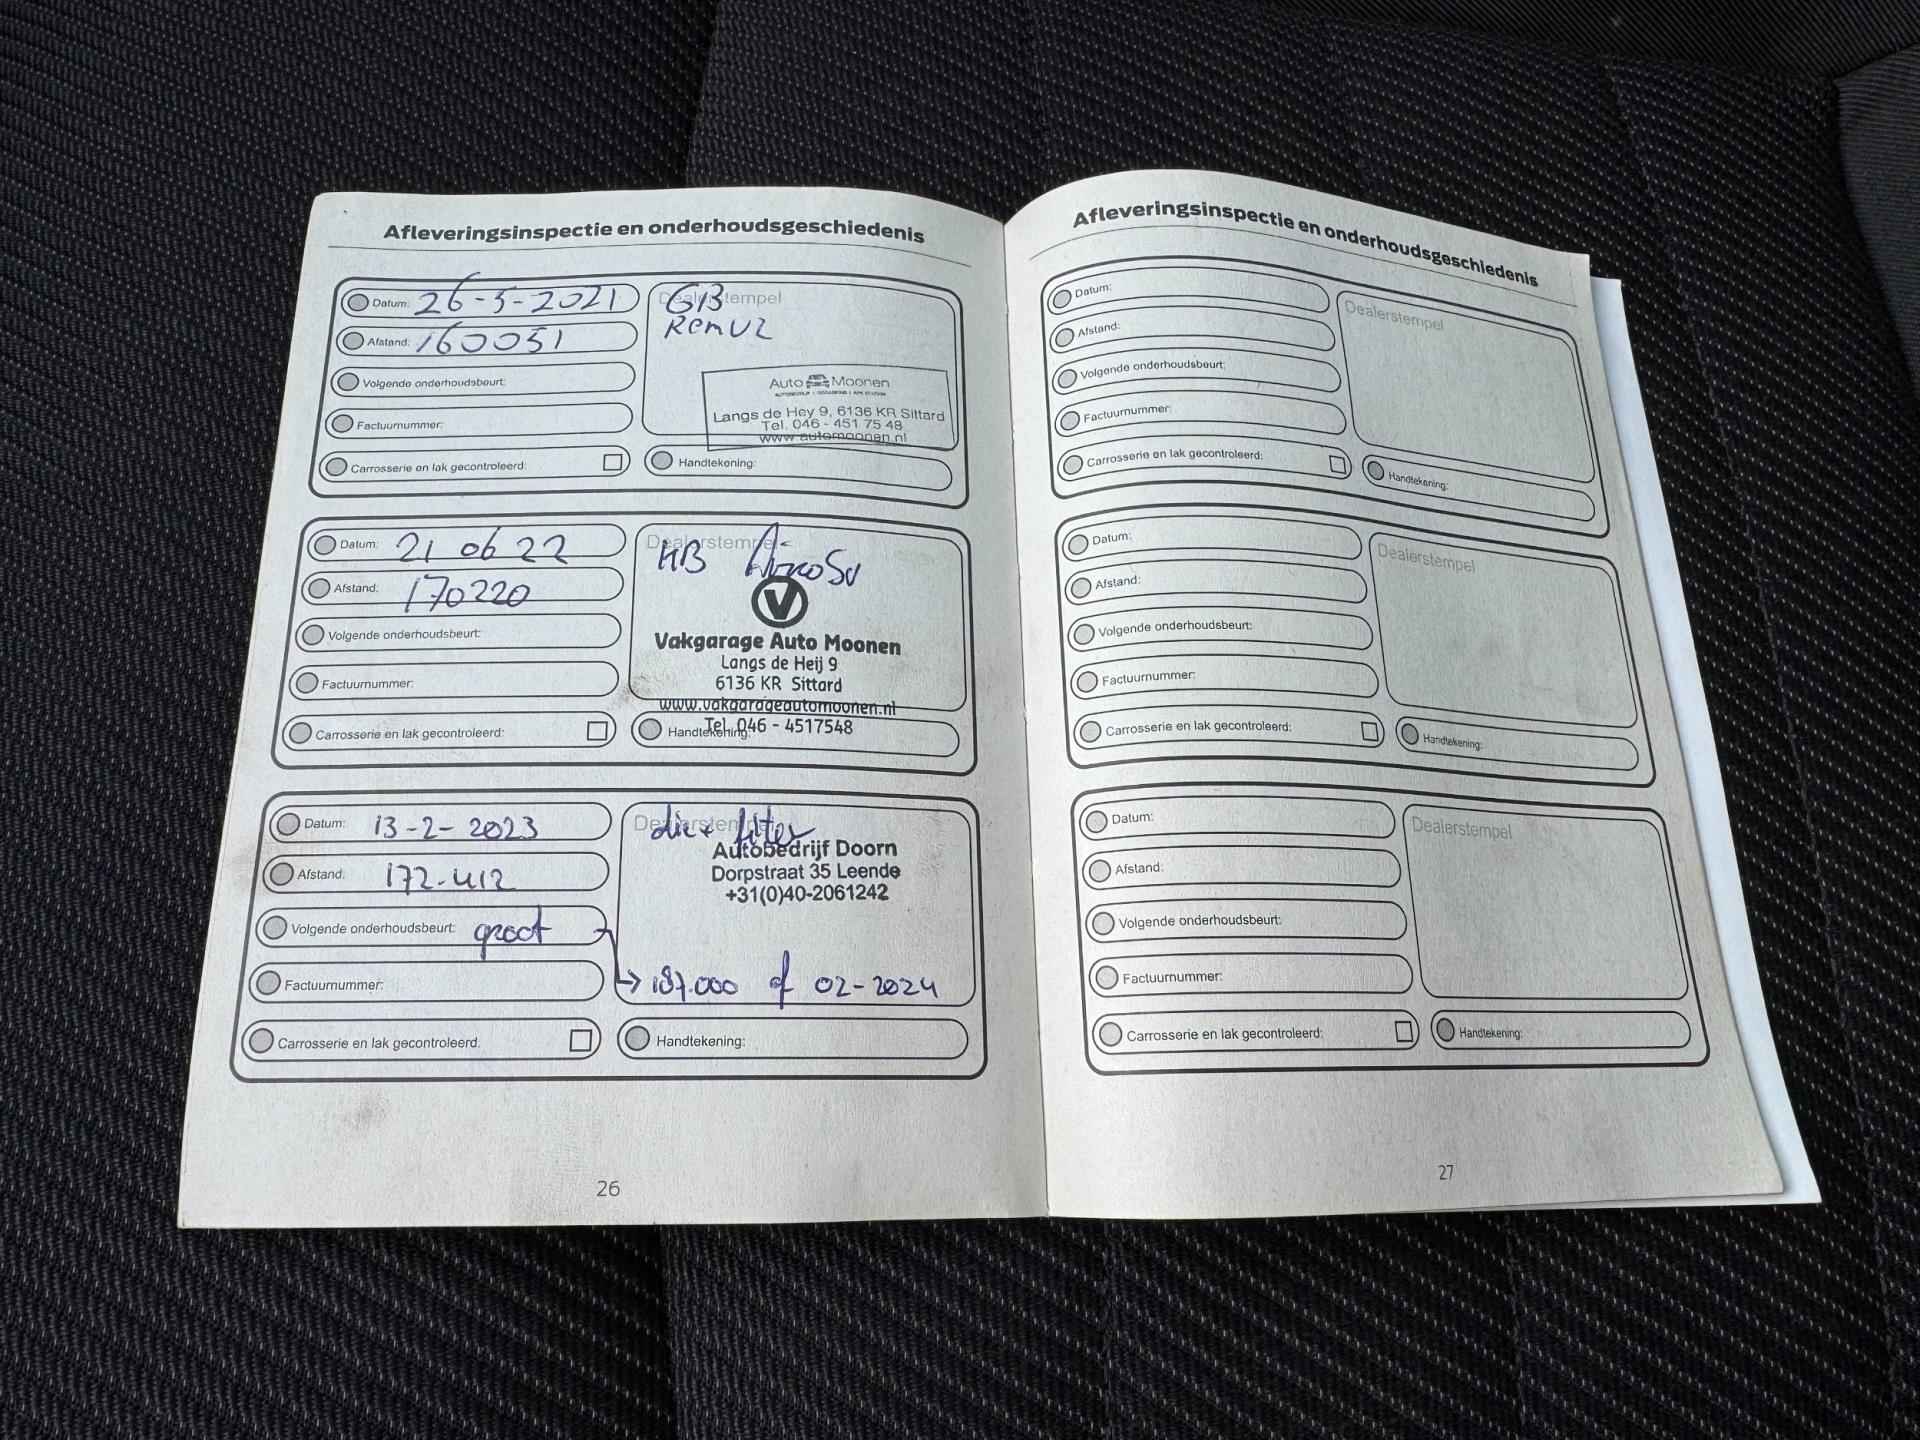 Afleveringsinspectie en onderhoudsgeschiedenis
Datum: 26-5-2021
Afstand: 160051
Volgende onderhoudsbeurt:
Factuurnummer:
Carrosserie en lak gecontroleerd:
Dealerstempel
GB
RemVL
Auto Moonen
Langs de Hey 9, 6136 KR Sittard
Tel. 046 - 451 75 48
www.automoonen.nl
Handtekening:
Datum: 21 06 22
Afstand: 170220
Volgende onderhoudsbeurt:
Factuurnummer:
Carrosserie en lak gecontroleerd:
Dealerstempel
V
Vakgarage Auto Moonen
Langs de Heij 9
6136 KR Sittard
www.vakgarageautomoonen.nl
Tel. 046 - 4517548
Handtekening:
Datum: 13-2-2023
Afstand: 172.412
Volgende onderhoudsbeurt: groot
Factuurnummer:
Carrosserie en lak gecontroleerd.
Dealerstempel
filter
Autobedrijf Doorn
Dorpstraat 35 Leende
+31(0)40-2061242
→ 187.000 of 02-2024
Handtekening:
26
Afleveringsinspectie en onderhoudsgeschiedenis
Datum:
Afstand:
Volgende onderhoudsbeurt:
Factuurnummer:
Carrosserie en lak gecontroleerd:
Dealerstempel
Handtekening:
Datum:
Afstand:
Volgende onderhoudsbeurt:
Factuurnummer:
Carrosserie en lak gecontroleerd:
Dealerstempel
Handtekening:
Datum:
Afstand:
Volgende onderhoudsbeurt:
Factuurnummer:
Carrosserie en lak gecontroleerd:
Dealerstempel
Handtekening:
27